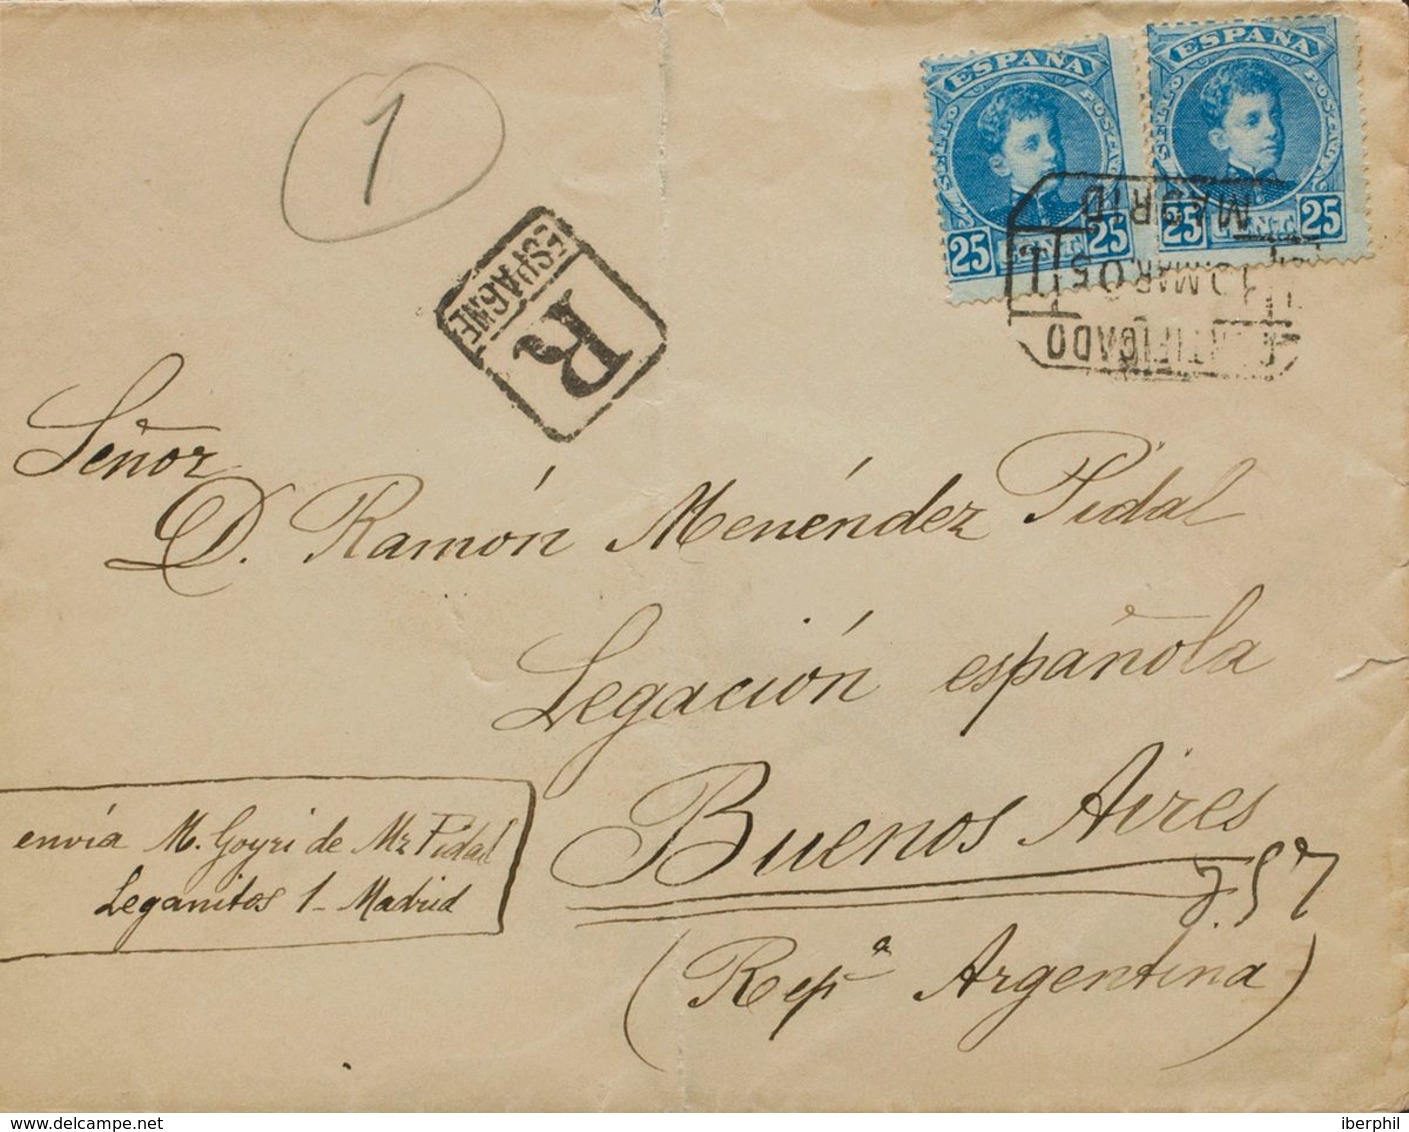 1
ESPAÑA
SELLO POSTAL
25 CENT. 25
ESPAÑA
SELLO POSTAL
25 25
MADRID
MAR 05
CERTIFICADO
R
ESPAGNE
Señor
D. Ramón Menéndez Pidal
Legación española
Buenos Aires
(Rep.ª Argentina)
envía M. Goyri de Mz Pidal
Leganitos 1 - Madrid
www.delcampe.net
iberphil